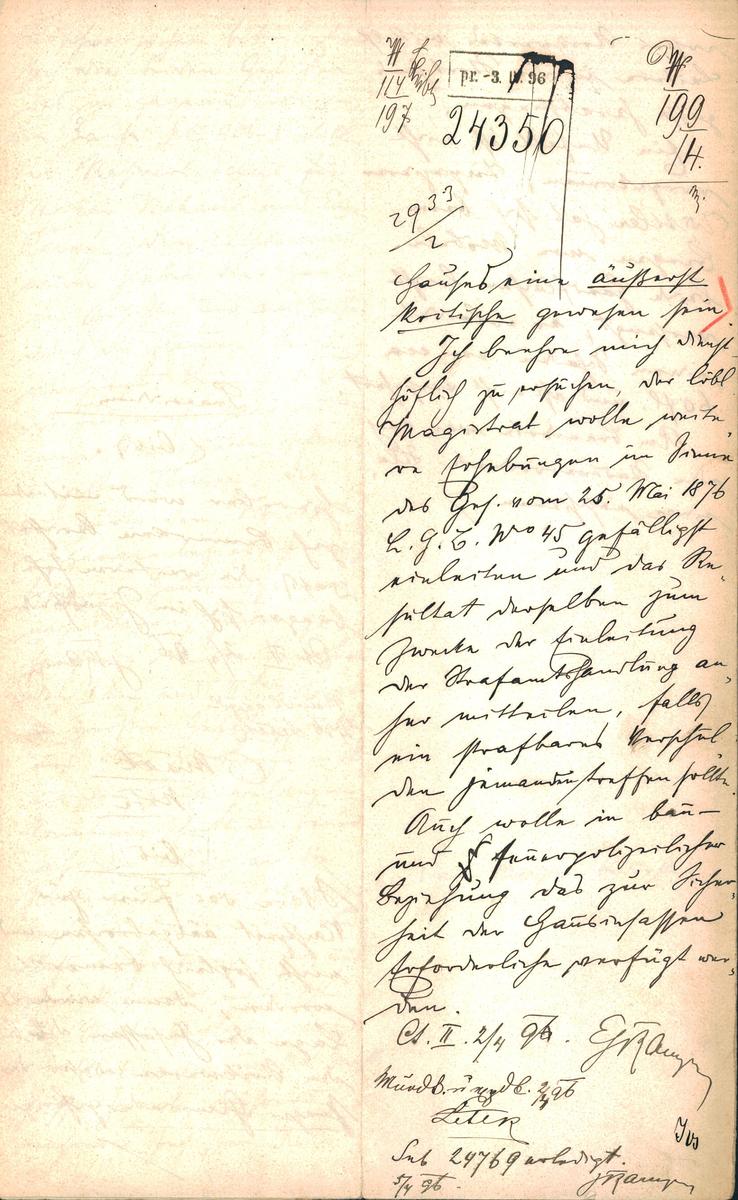 W
114
197
pr. -3. IV. 96
24350
W
199
14.
29 33
2
Hauses eine äußerst
kritische gewesen sein.
Ich beehre mich dienst-
höflich zu ersuchen, der löbl
Magistrat wolle weite-
re Erhebungen im Sinne
des Ges. vom 25. Mai 1876
L. G. B. No 45 gefälligst
einleiten und das Re-
sultat derselben zum
Zwecke der Einleitung
der Strafamtshandlung an-
her mitteilen, falls
ein strafbares Verschul-
den jemanden treffen sollte.
Auch wolle in bau-
und feuerpolizeilicher
Beziehung das zur Sicher-
heit der Hausinsassen
Erforderliche verfügt wer-
den.
Ct. II. 2/4 96.
2/4 96
Sub 24769 erledigt.
5/4 96.